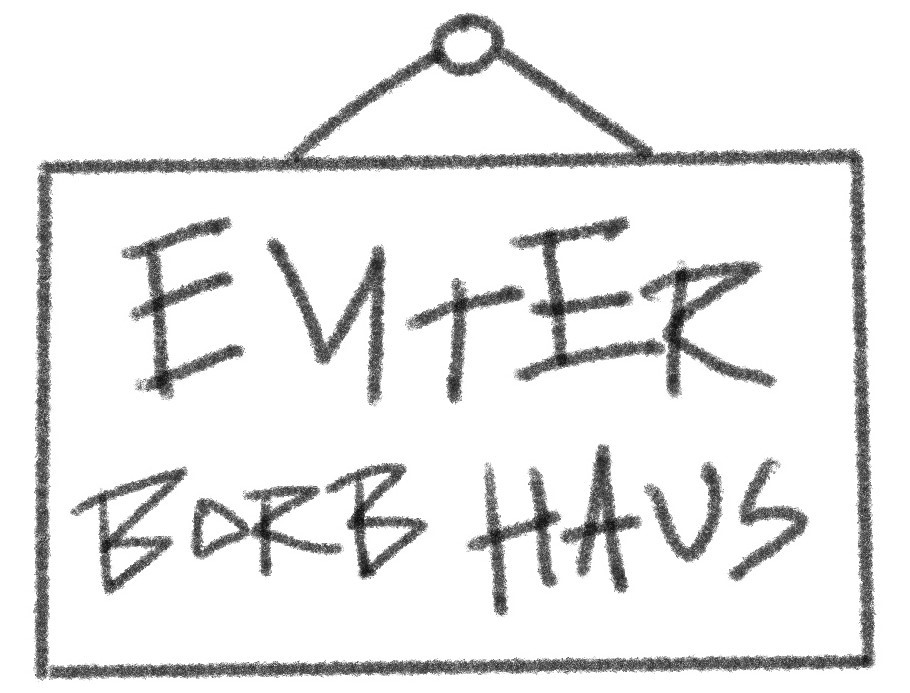 ENTER
BORB HAUS